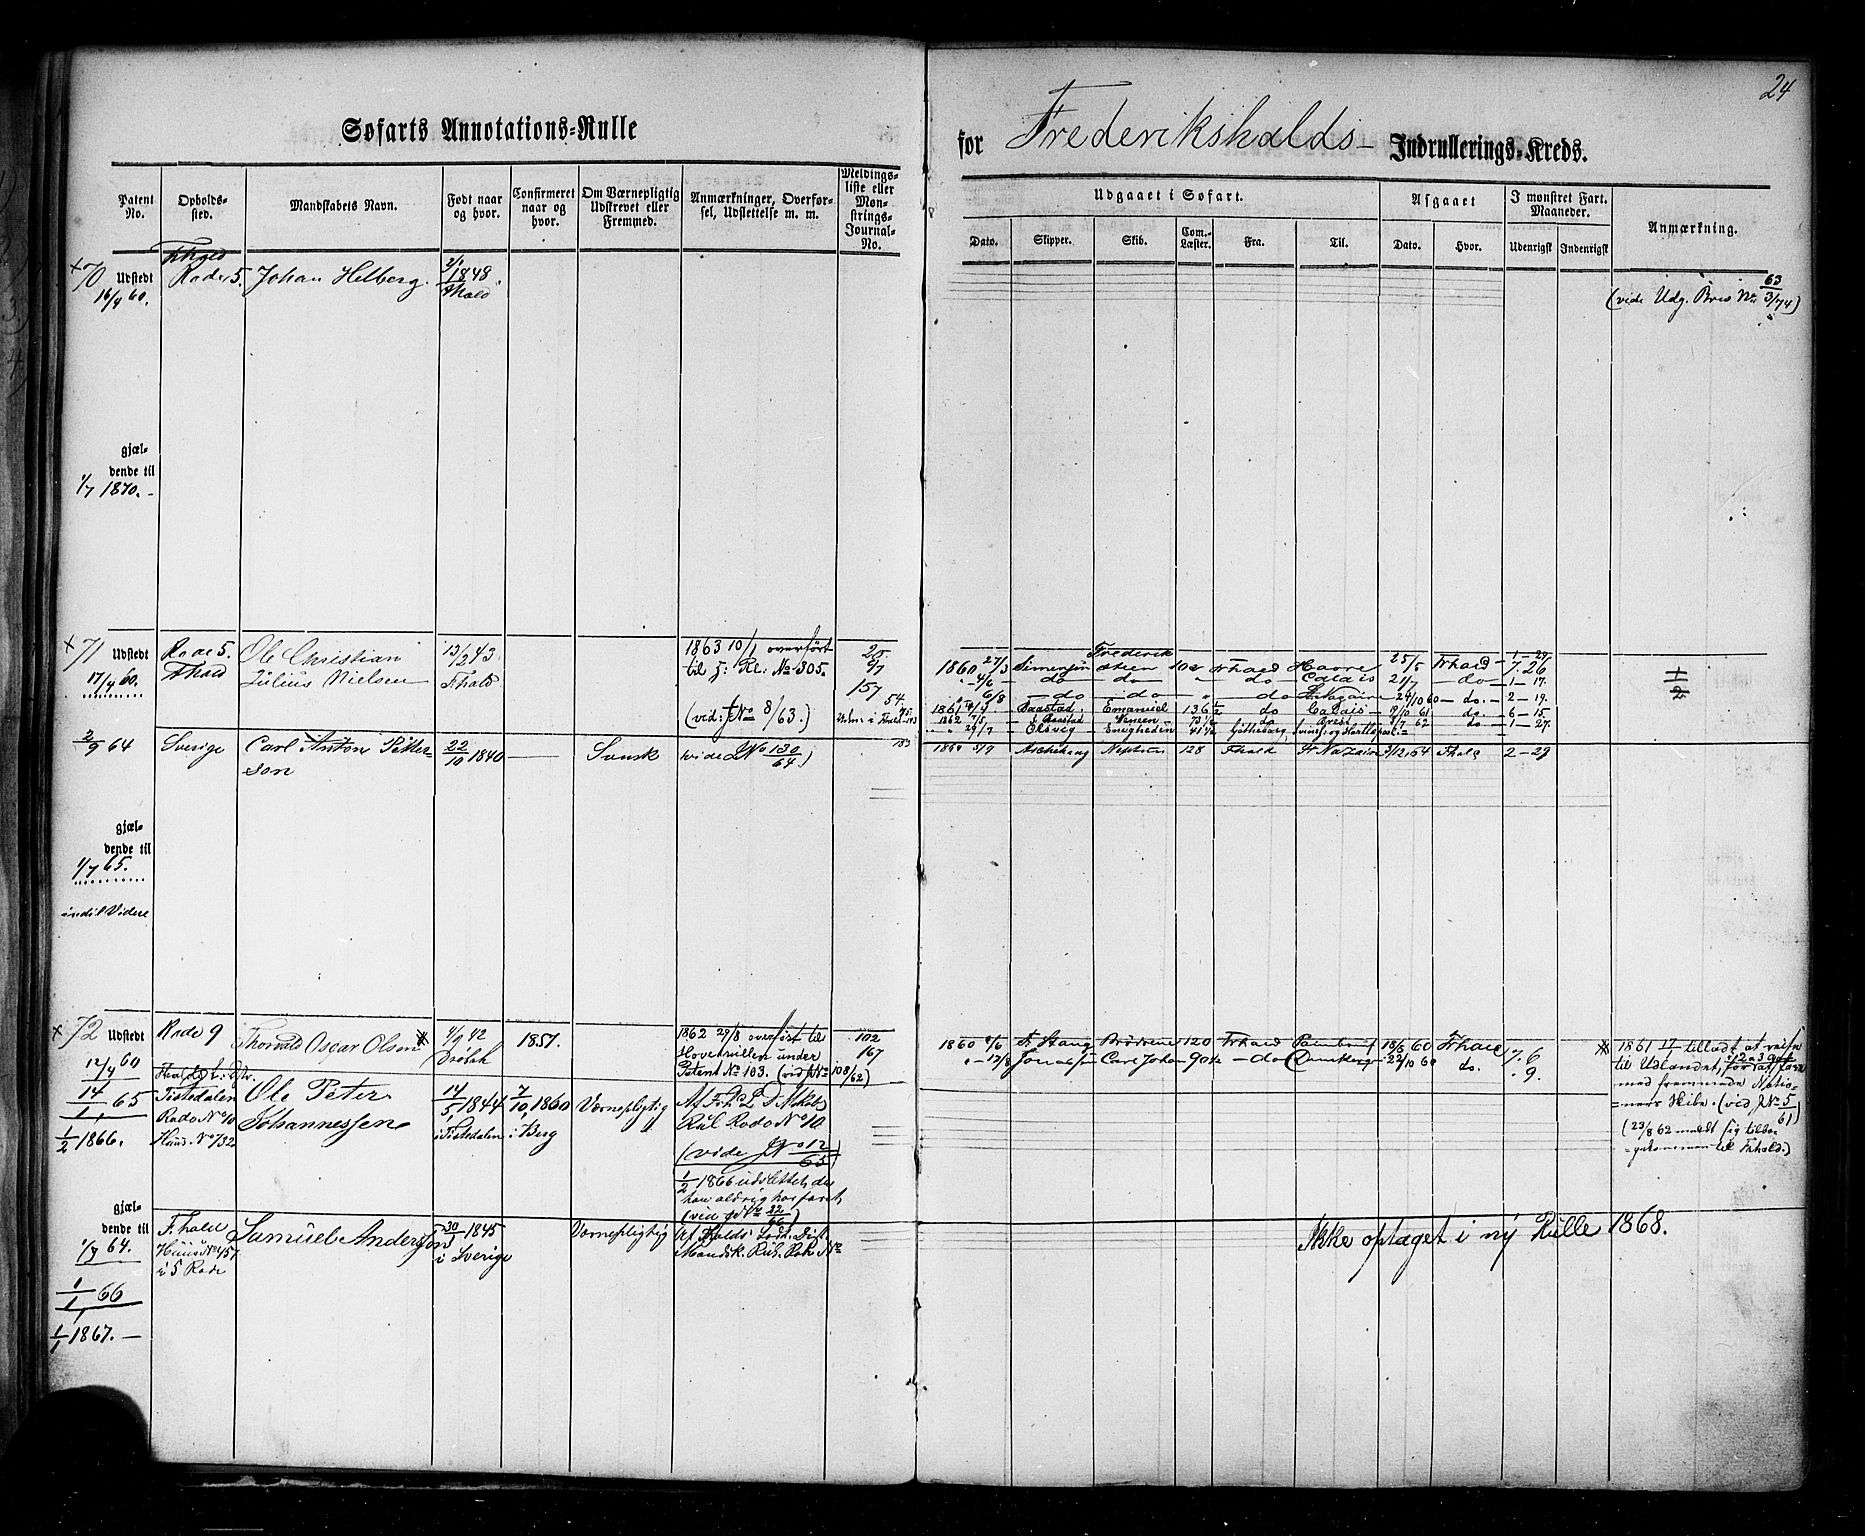 24
Søfarts Annotations-Rulle
for Frederikshalds Indrullerings-Kreds.
Patent No.
Opholds-sted.
Mandskabets Navn.
Født naar og hvor.
Confirmeret naar og hvor.
Om Værnepligtig Udskrevet eller Fremmed.
Anmærkninger, Overførsel, Udslettelse m. m.
Meldings-liste eller Mønstrings-Journal-No.
Udgaaet i Søfart.
Dato.
Skipper.
Skib.
Com.-Læster.
Fra.
Til.
Afgaaet
Dato.
Hvor.
I mønstret Fart. Maaneder.
Udenrigsk
Indenrigsk
Anmærkning.
70 Udstedt
16/4 60.
Rode 5.
Johan Helberg.
2/1 1848
Fhald
(vide Udg. Brev No 63
3/74)
gjæl-
dende til
1/7 1870.
71 Udstedt
17/4 60.
Rode 5.
Fhald
Ole Christian
Julius Nielsen
13/2 43
Fhald
1863 10/1 overført
til Rl: No 305.
(vid: JNo 8/63.)
157
54
1860 27/3 Simensen Frederik Fhald Havre 25/5 Fhald 7.26
4/6 do do do Calais 21/7 do 1-17.
6/8 do do do St Nazaire 24/10 60 do. 2-19.
1861 Baastad. Emanuel 136 1/2 do Calais 61 do 6-15
1862 Baastad Venseen do Brest 62 do 1-27.
29/7 Elsvig Enigheden 41 1/2 Gøtheborg
1/2
2/9 64
Sverige
Carl Anton Petter-
son
22/10 1840
Svensk
(vide JNo 130/64.)
183
1864 5/9 Aschehoug Neptun 128 Fhald St Nazaire 3/12 64 Fhald 2-29
gjæl-
dende til
1/7 65.
indtil Videre
72 Udstedt
12/4 60
Rode 9
Thorvald Oscar Olsen
4/9 42
Drøbak
1857.
1862 29/8 overført til
Hovedrullen under
Patent No 103. (vid JNo 108/62)
102
167
1860 4/6 F. Stang Brødrene 120 Fhald 18/8 60 Fhald 7.6
13/8 Jonassen Carl Johan 90 do 22/10 60 do. 9.
1861 17 tilladt at reise
til Udlandet, for at fare
med fremmede Natio-
ners Skibe. (vid JNo 5/61)
(23/8 62 meldt sig tilba-
gekommen til Fhald.)
14/1 65
1/2 1866.
Tistedalen
Rode No 10
Huus No 132
Ole Peter
Johannessen
14/5 1844
i Tistedalen
7/10 1860
i Berg
Værnepligtig
Rul Rode No 10
(vide JNo 12/65)
1/2 1866 udslettet, da
han aldrig har faret,
(vid JNo 22/66)
gjæl-
dende til
1/7 64.
1/1 66
1/1 1867.
F.hald
Huus No 457
i 5 Rode
Samuel Anderson
30/1 1845
i Sverige
Værnepligtig
Af Fhalds Distr.
Mandsk. Rul. Rode No
Ikke optaget i ny Rulle 1868.